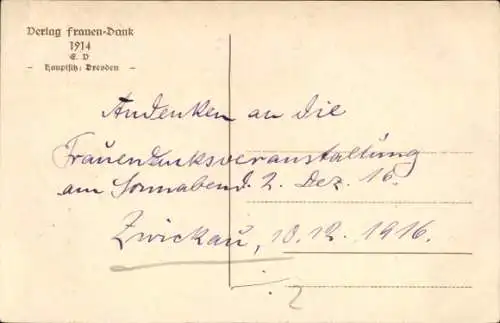 Verlag Frauen-Dank
1914
E. V
- Hauptsitz: Dresden -
Andenken an die
Frauendanksveranstaltung
am Sonnabend. 2. Dez. 16.
Zwickau, 10.12.1916.
2